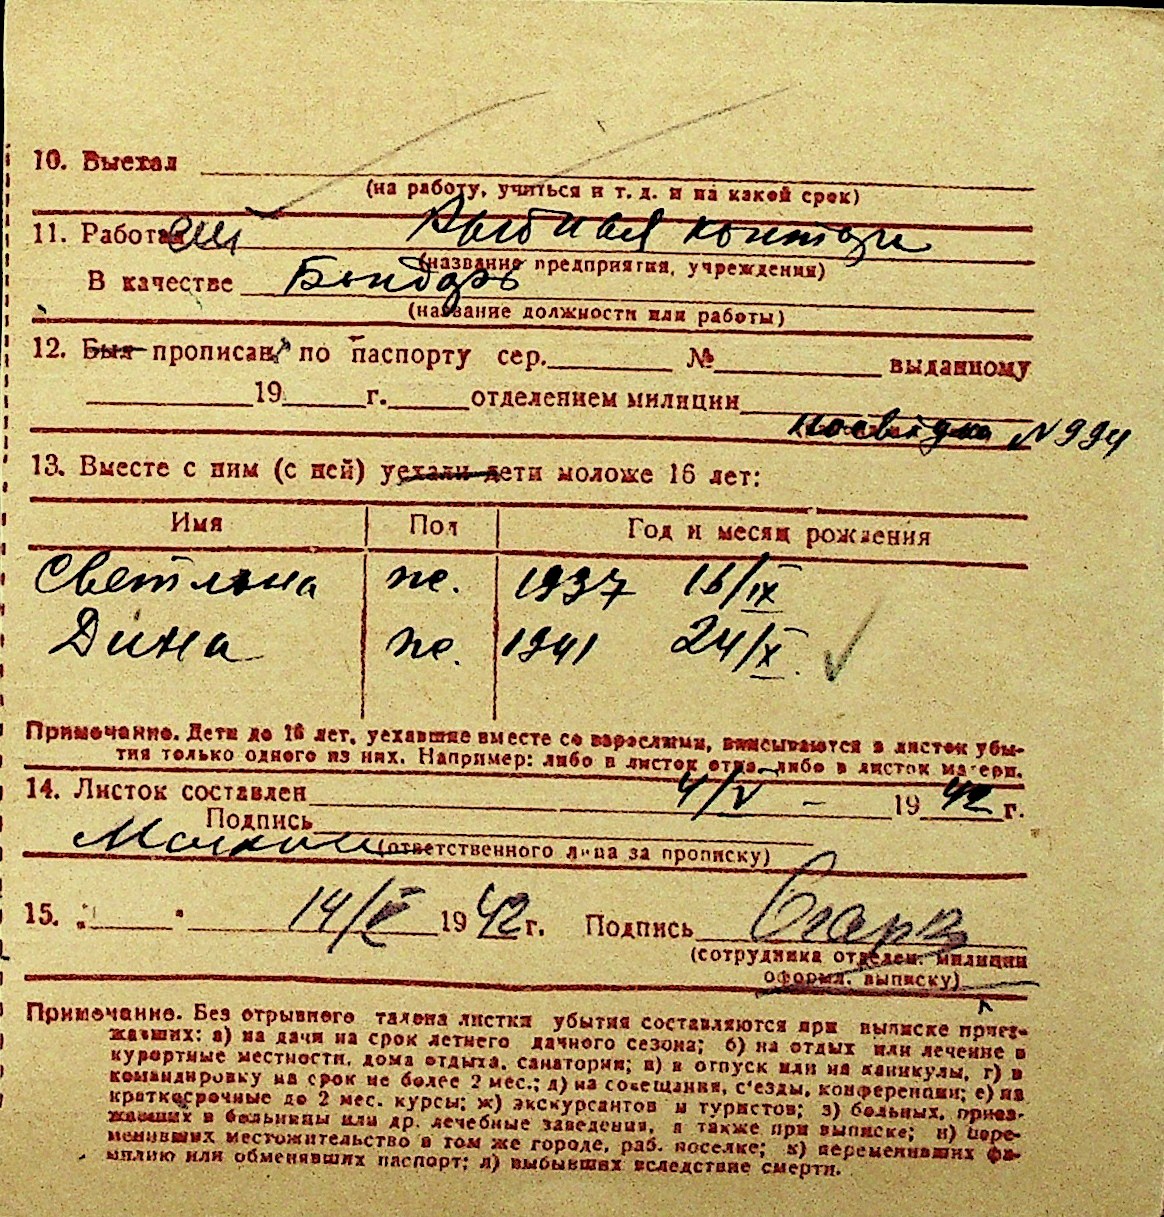 10. Выехал
(на работу, учиться и т. д. и на какой срок)
11. Работа Рыбная контора
(название предприятия, учреждения)
В качестве Бондарь
(название должности или работы)
12. Был прописан по паспорту сер. № выданному
19 г. отделением милиции
посвідка №994
13. Вместе с ним (с ней) уехали дети моложе 16 лет:
Имя Пол Год и месяц рождения
Светлана ж. 1937 16/IX
Дина ж. 1941 24/X.
Примечание. Дети до 16 лет, уехавшие вместе со взрослыми, вписываются в листок убы-
тия только одного из них. Например: либо в листок отца, либо в листок матери.
14. Листок составлен 4/V - 1942 г.
Подпись
(ответственного лица за прописку)
15. " " 14/V 1942 г. Подпись
(сотрудника отделен. милиции
оформл. выписку)
Примечание. Без отрывного талона листки убытия составляются при выписке приез-
жавших: а) на дачи на срок летнего дачного сезона; б) на отдых или лечение в
курортные местности, дома отдыха, санатории; в) в отпуск или на каникулы, г) в
командировку на срок не более 2 мес.; д) на совещания, с'езды, конференции; е) на
краткосрочные до 2 мес. курсы; ж) экскурсантов и туристов; з) больных, приез-
жавших в больницы или др. лечебные заведения, а также при выписке; и) пере-
менивших местожительство в том же городе, раб. поселке; к) переменивших фа-
милию или обменявших паспорт; л) выбывших вследствие смерти.